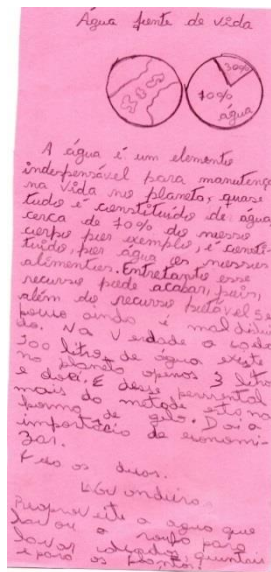 Água fonte de vida
30%
70%
água
A água é um elemento
indespensável para manutenç
na vida no planeta, quase
tudo é constituído de água
cerca de 70% do nosso
corpo por exemplo, é consti-
tuído, por água os nossos
alimentos. Entretanto esse
recurso pode acabar, pois,
além do recurso potável se
pouco ainda é mal
do. Na Verdade a cada
300 litro de água existe
no planeta apenas 3 litro
é doce. E desse
mais do metade esta na
forma de gelo. Dai a
importácia de economi-
zar.
os
Reaproveite a agua que
lavou a roupa para
lavar calçadas, quintais
e para as plantas!